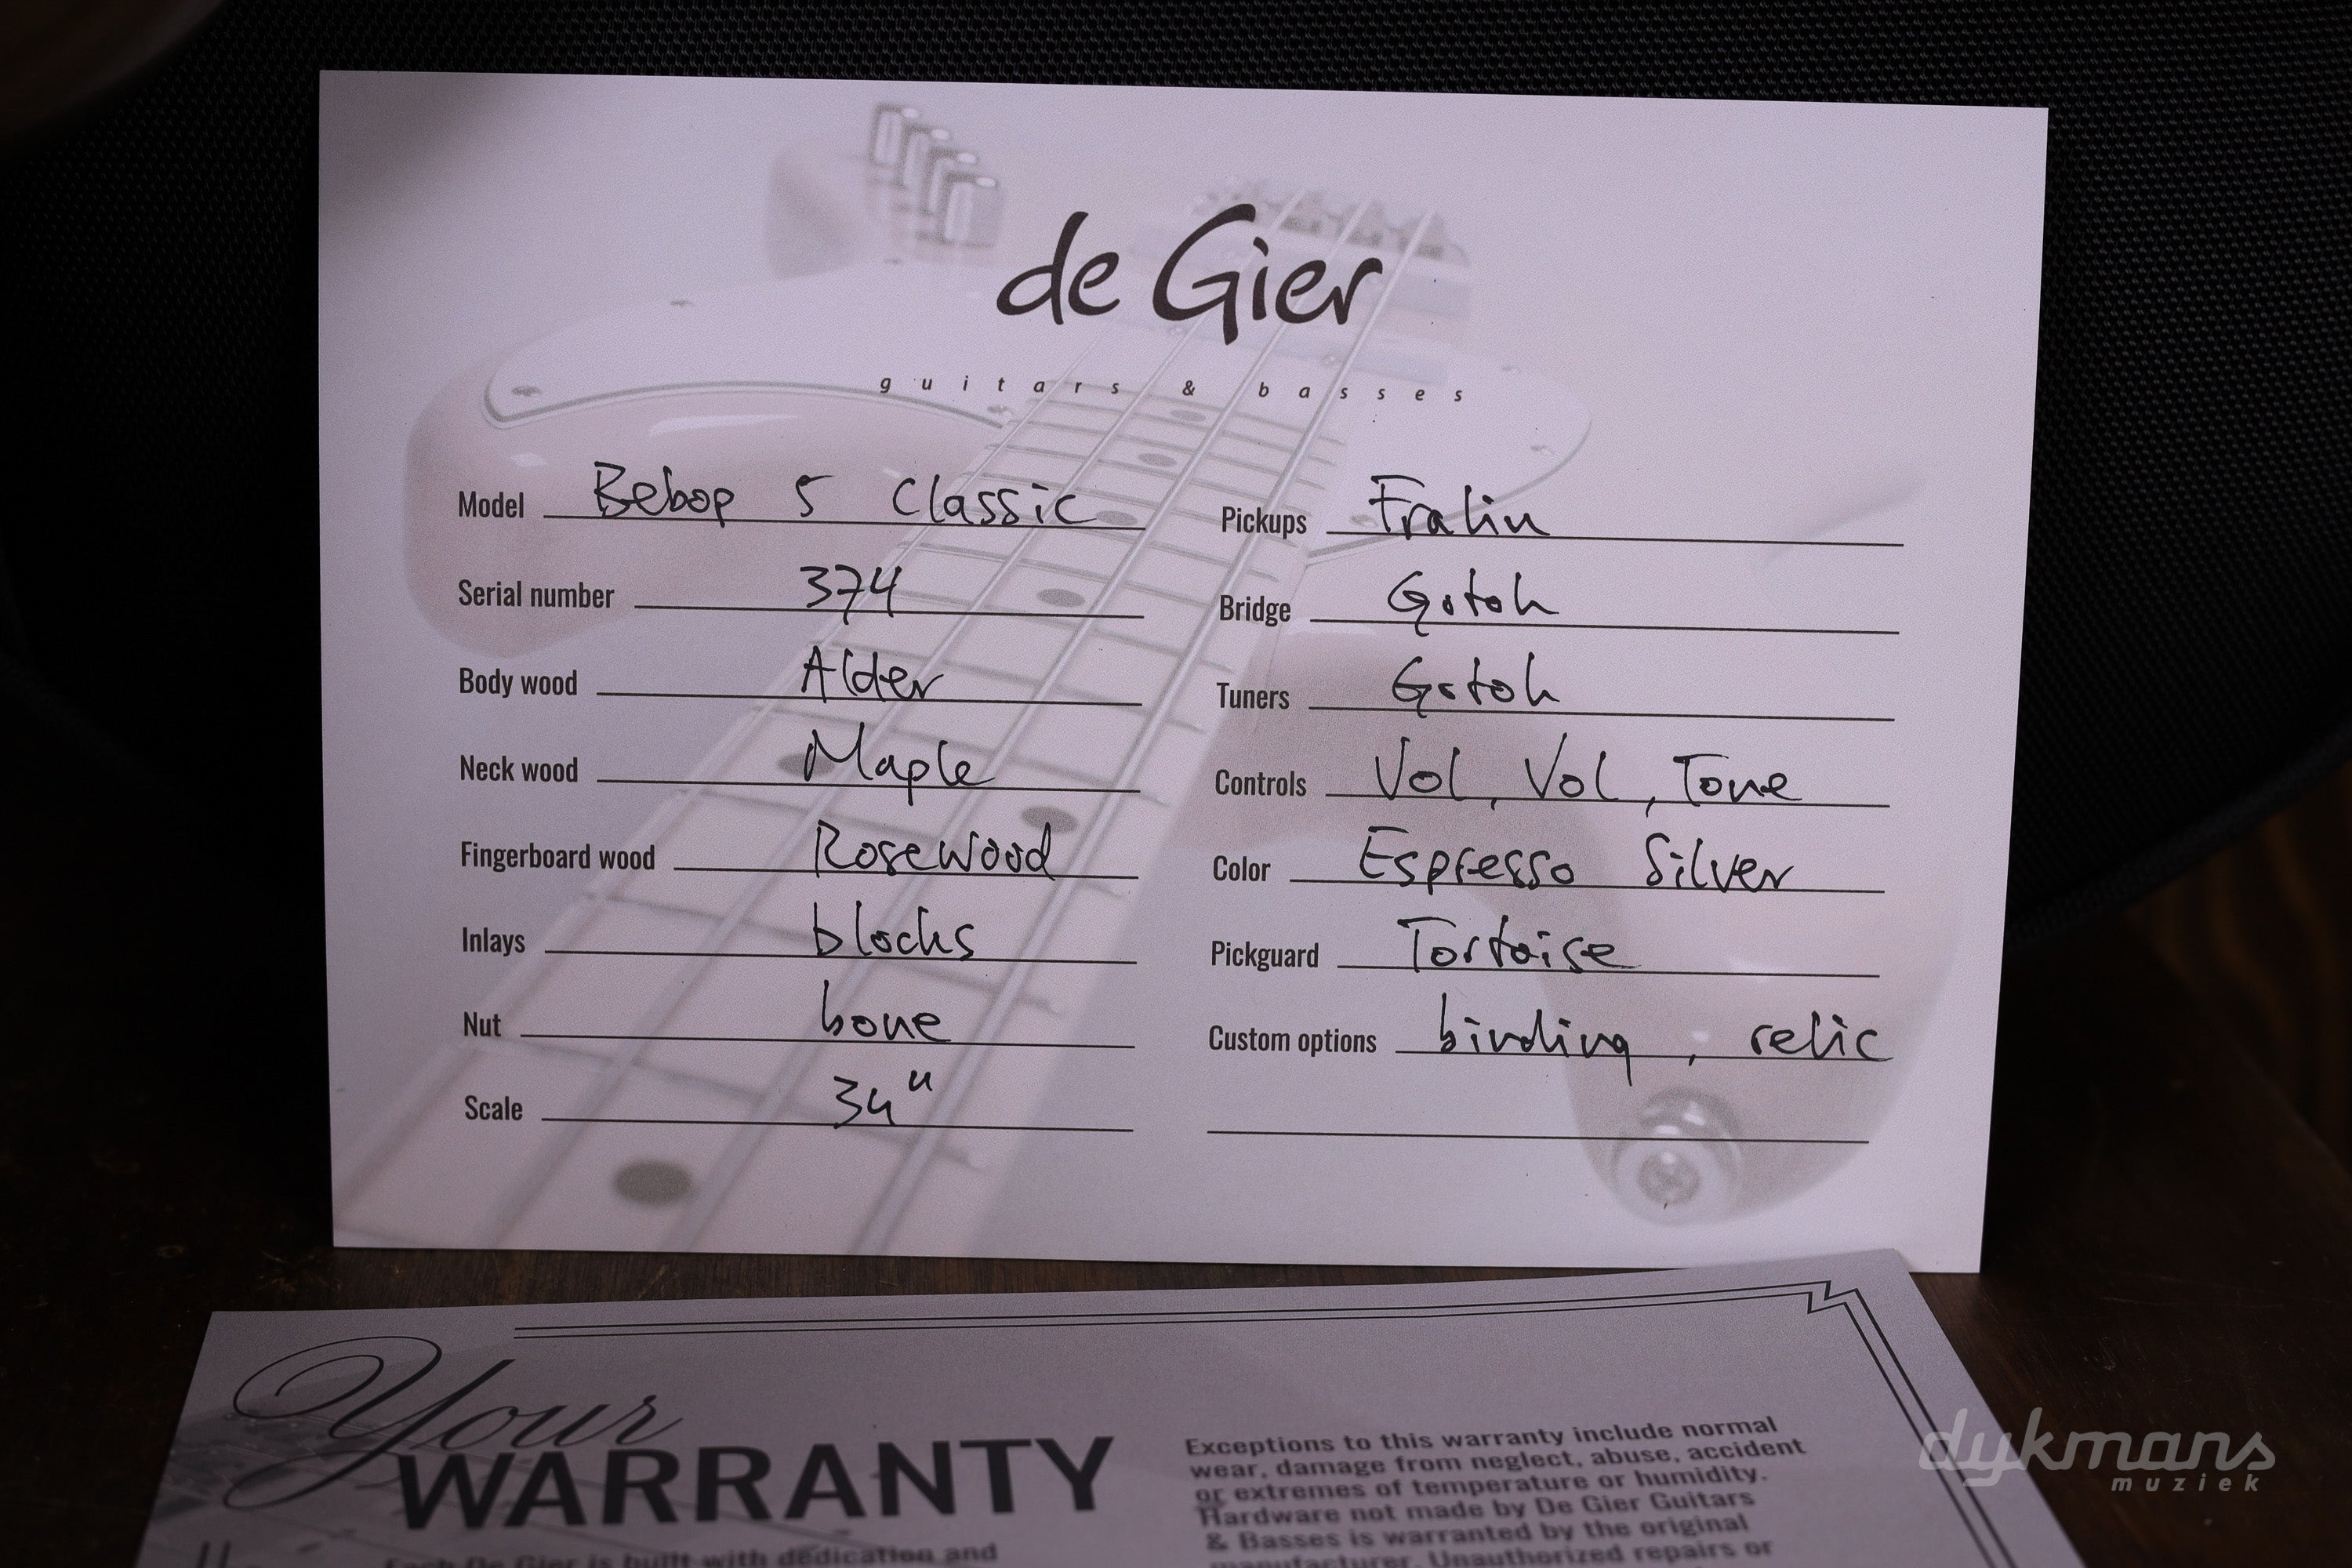 de Gier
guitars & basses
Model Bebop 5 Classic
Serial number 374
Body wood Alder
Neck wood Maple
Fingerboard wood Rosewood
Inlays blocks
Nut bone
Scale 34"
Pickups Fralin
Bridge Gotoh
Tuners Gotoh
Controls Vol, Vol, Tone
Color Espresso Silver
Pickguard Tortoise
Custom options binding, relic
Your
WARRANTY
Each De Gier is built with dedication and
Exceptions to this warranty include normal
wear, damage from neglect, abuse, accident
or extremes of temperature or humidity.
Hardware not made by De Gier Guitars
& Basses is warranted by the original
manufacturer. Unauthorized repairs or
dykmans
muziek